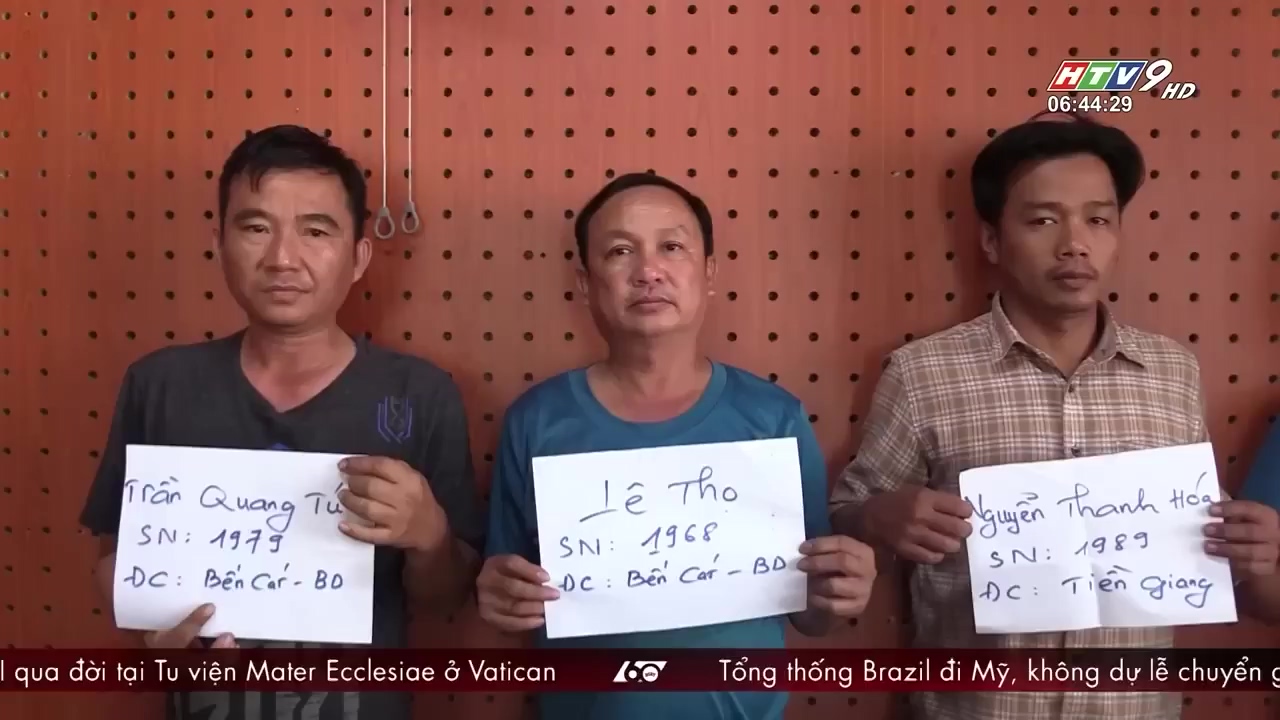 HTV9 HD
06:44:29
Trần Quang Tú
SN: 1979
ĐC: Bến Cát - BD
Lê Thọ
SN: 1968
ĐC: Bến Cát - BD
Nguyễn Thanh Hóa
SN: 1989
ĐC: Tiền Giang
l qua đời tại Tu viện Mater Ecclesiae ở Vatican
60 giây
Tổng thống Brazil đi Mỹ, không dự lễ chuyển g